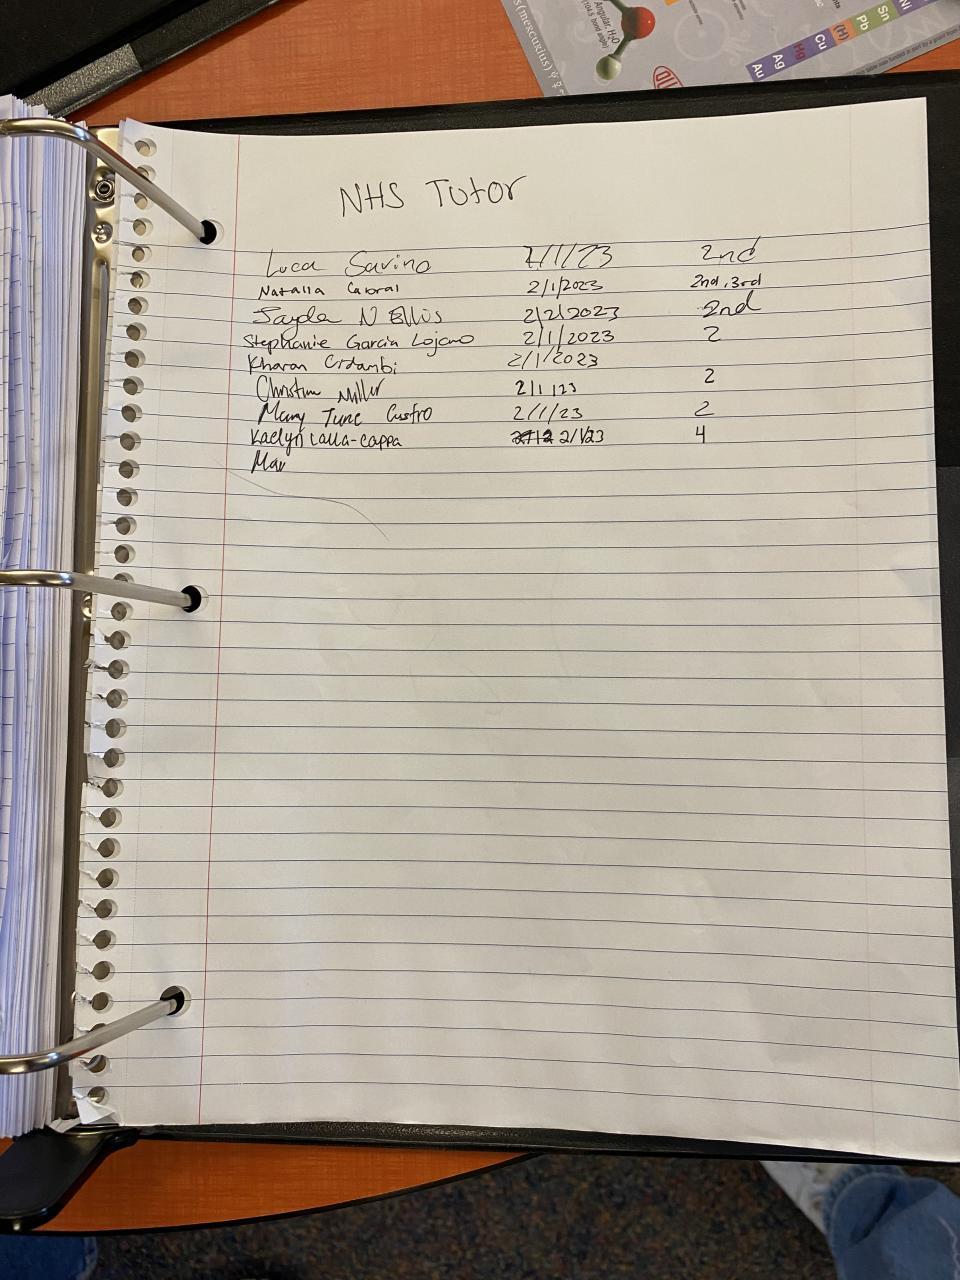 s (mercurius) ☿
Angular, H₂O
(104.5 bond angle)
Au Ag Hg Cu (H) Pb Sn Ni
NHS Tutor
Luca Savino 2/1/23 2nd
Natalia Cabral 2/1/2023 2nd, 3rd
Jayda N Ellis 2/2/2023 2nd
Stephanie Garcia Lojano 2/1/2023 2
Kharan Cidambi 2/1/2023
Christine Miller 2/1/23 2
Mary June Castro 2/1/23 2
Kaelyn Calla-Cappa 2/1/23 4
Mar